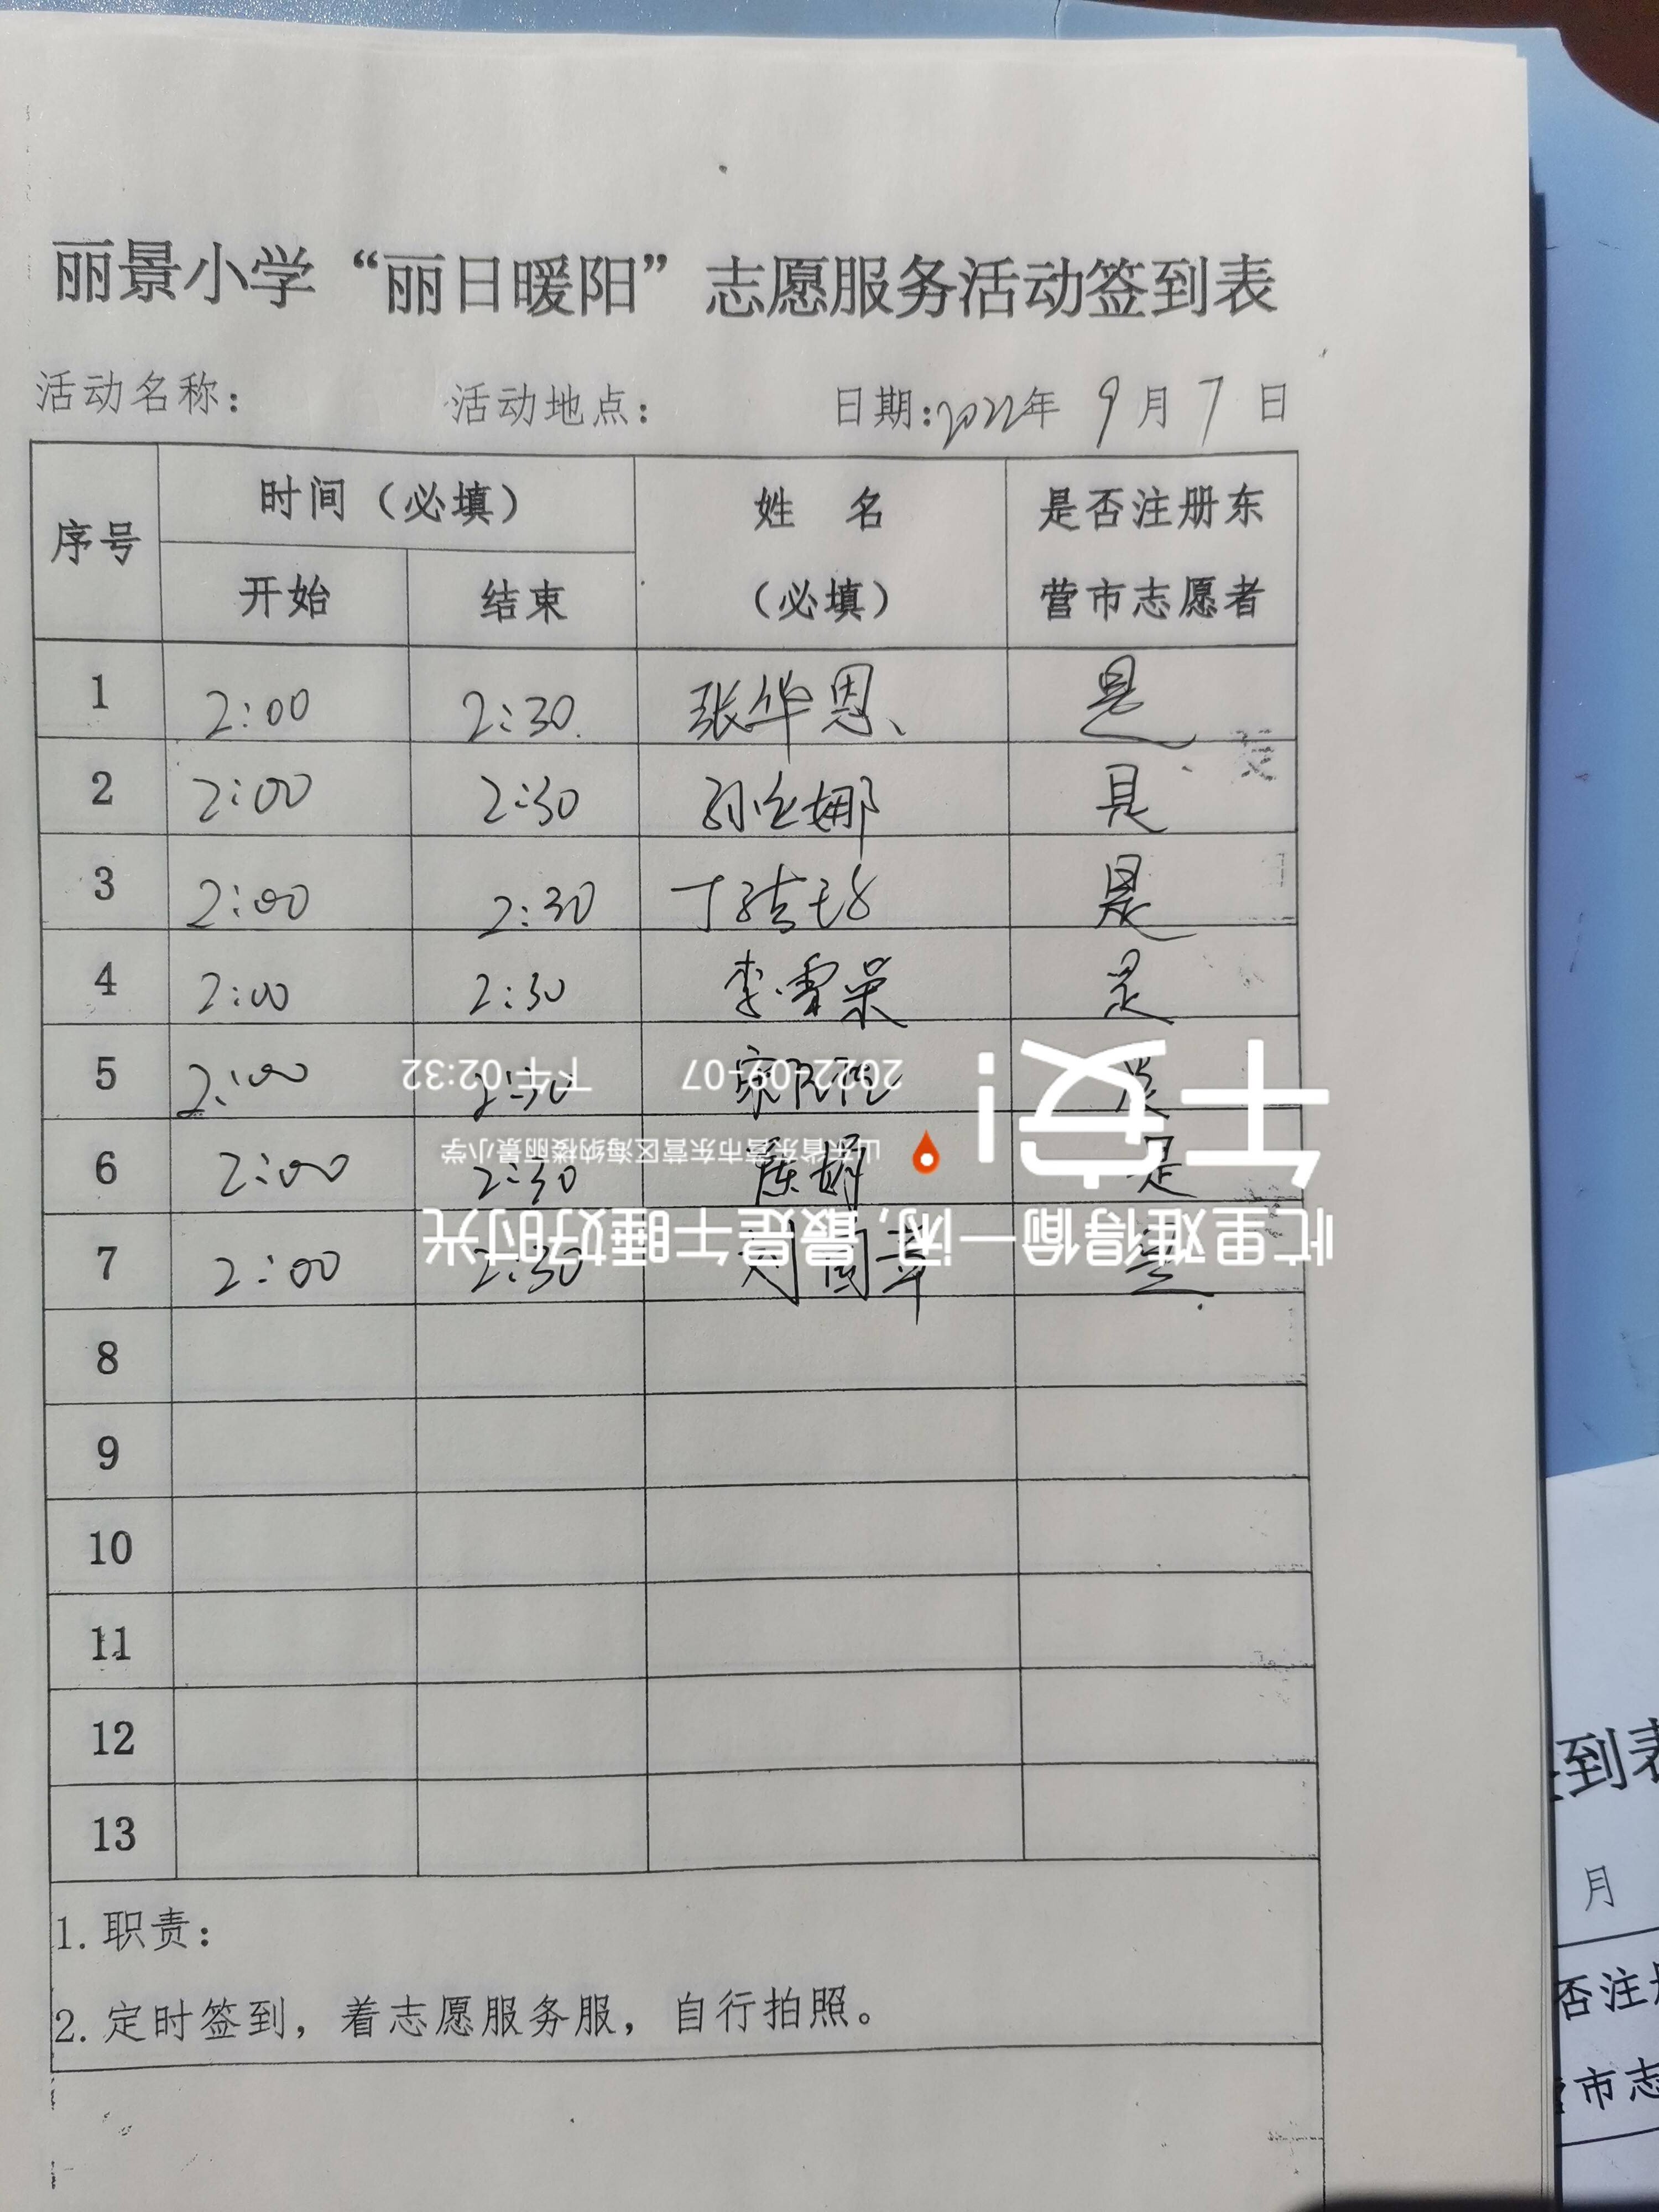 丽景小学“丽日暖阳”志愿服务活动签到表
活动名称： 活动地点： 日期:2022年 9月 7日
序号 时间（必填） 姓 名 （必填） 是否注册东营市志愿者
开始 结束
1 2:00 2:30 张华恩 是
2 2:00 2:30 孙 娜 是
3 2:00 2:30 丁 是
4 2:00 2:30 李雪荣 是
5 2:00 2:30 是
6 2:00 2:30 陈娟 是
7 2:00 2:30 刘国章 是
8
9
10
11
12
13
1.职责：
2.定时签到，着志愿服务服，自行拍照。
忙里难得偷一闲,最是午睡好时光
山东省东营市东营区海纳楼丽景小学
午安!
2022-09-07 下午02:32
签到表
月
否注册
营市志